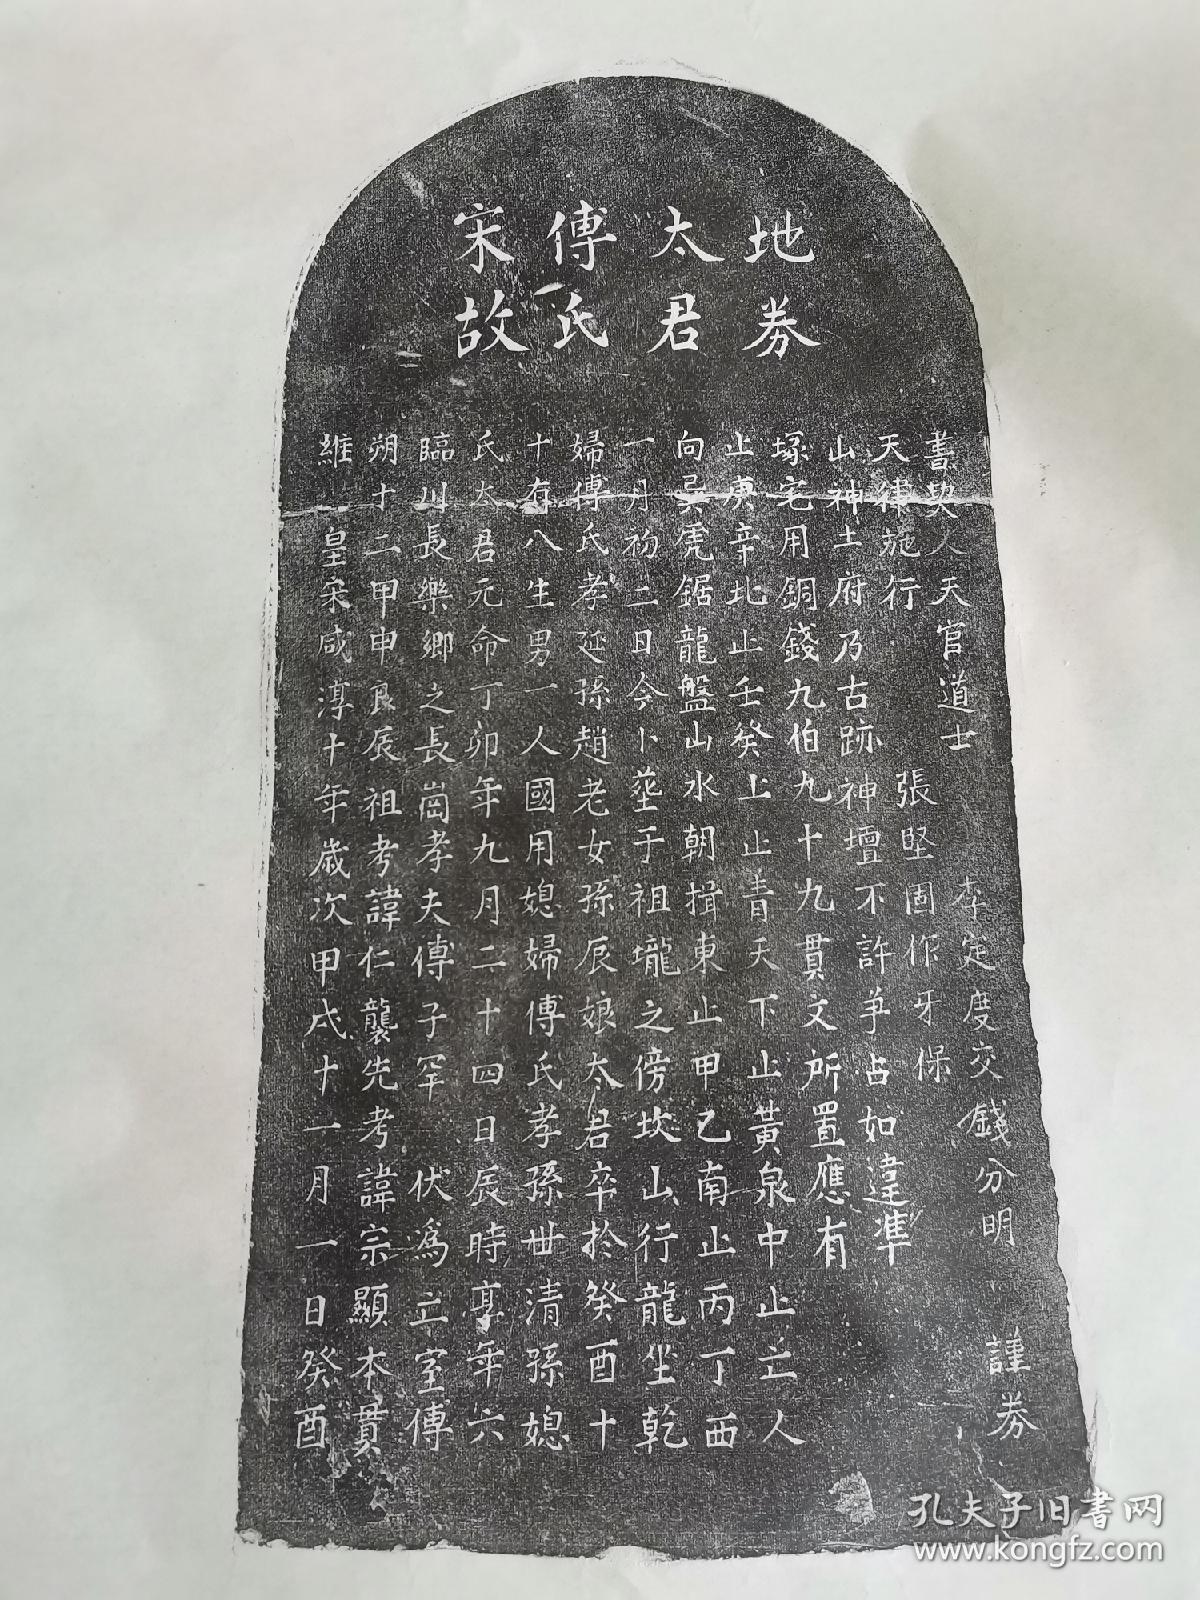 宋故
傅氏
太君
地券
維 皇宋咸淳十年歲次甲戌十一月一日癸酉
朔十二甲申良辰祖考諱仁襲先考諱宗顯本貫
臨川長樂鄉之長崗孝夫傅子罕 伏爲亡室傅
氏太君元命丁卯年九月二十四日辰時享年六
十有八生男一人國用媳婦傅氏孝孫世清孫媳
婦傅氏孝延孫趙老女孫辰娘太君卒於癸酉十
一月初二日今卜塟于祖壠之傍坎山行龍坐乾
向巽虎鋸龍盤山水朝揖東止甲乙南止丙丁西
止庚辛北止壬癸上止青天下止黃泉中止亡人
塚宅用銅錢九伯九十九貫文所置應有
山神土府乃古跡神壇不許爭占如違準
天律施行 張堅固作牙保
書契人天官道士 李定度交錢分明 謹券
孔夫子旧书网
www.kongfz.com